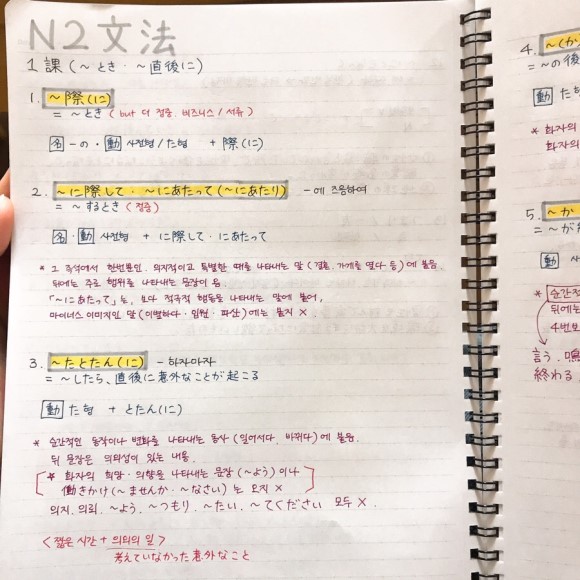 N2文法
1課 (～とき・～直後に)
1. ～際(に)
= ～とき ( but 더 정중. 비즈니스 / 서류 )
名 -の ・ 動 사전형 / た형 + 際(に)
2. ～に際して・～にあたって(～にあたり) - 에 즈음하여
= ～するとき ( 정중 )
名・動 사전형 + に際して・にあたって
* 그 즉석에서 한번뿐인. 의지적이고 특별한 때를 나타내는 말 (결혼. 가게를 열다 등) 에 붙음.
뒤에는 주로 행위를 나타내는 문장이 옴.
「～にあたって」는, 보다 적극적 행동을 나타내는 말에 붙어,
마이너스 이미지인 말 (이별하다 · 입원 · 파산) 에는 붙지 ×
3. ～たとたん(に) - 하자마자
= ～したら、直後に意外なことが起こる
動 た형 + とたん(に)
* 순간적인 동작이나 변화를 나타내는 동사 (일어서다. 바뀌다) 에 붙음.
뒤 문장은 의외성이 있는 내용.
* 화자의 희망 · 의향을 나타내는 문장 (～よう) 이나
働きかけ (～ませんか・～なさい) 는 오지 ×
의지. 의뢰. ～よう. ～つもり. ～たい. ～てください 모두 ×.
< 짧은 시간 + 의외의 일 >
考えていなかった意外なこと
4. ～(か
= ～の後
動 た형
* 화자의
화자의
5. ～か
= ～が
動 사전
* 순간적
뒤에는
4번보
言う. 鳴
終わる